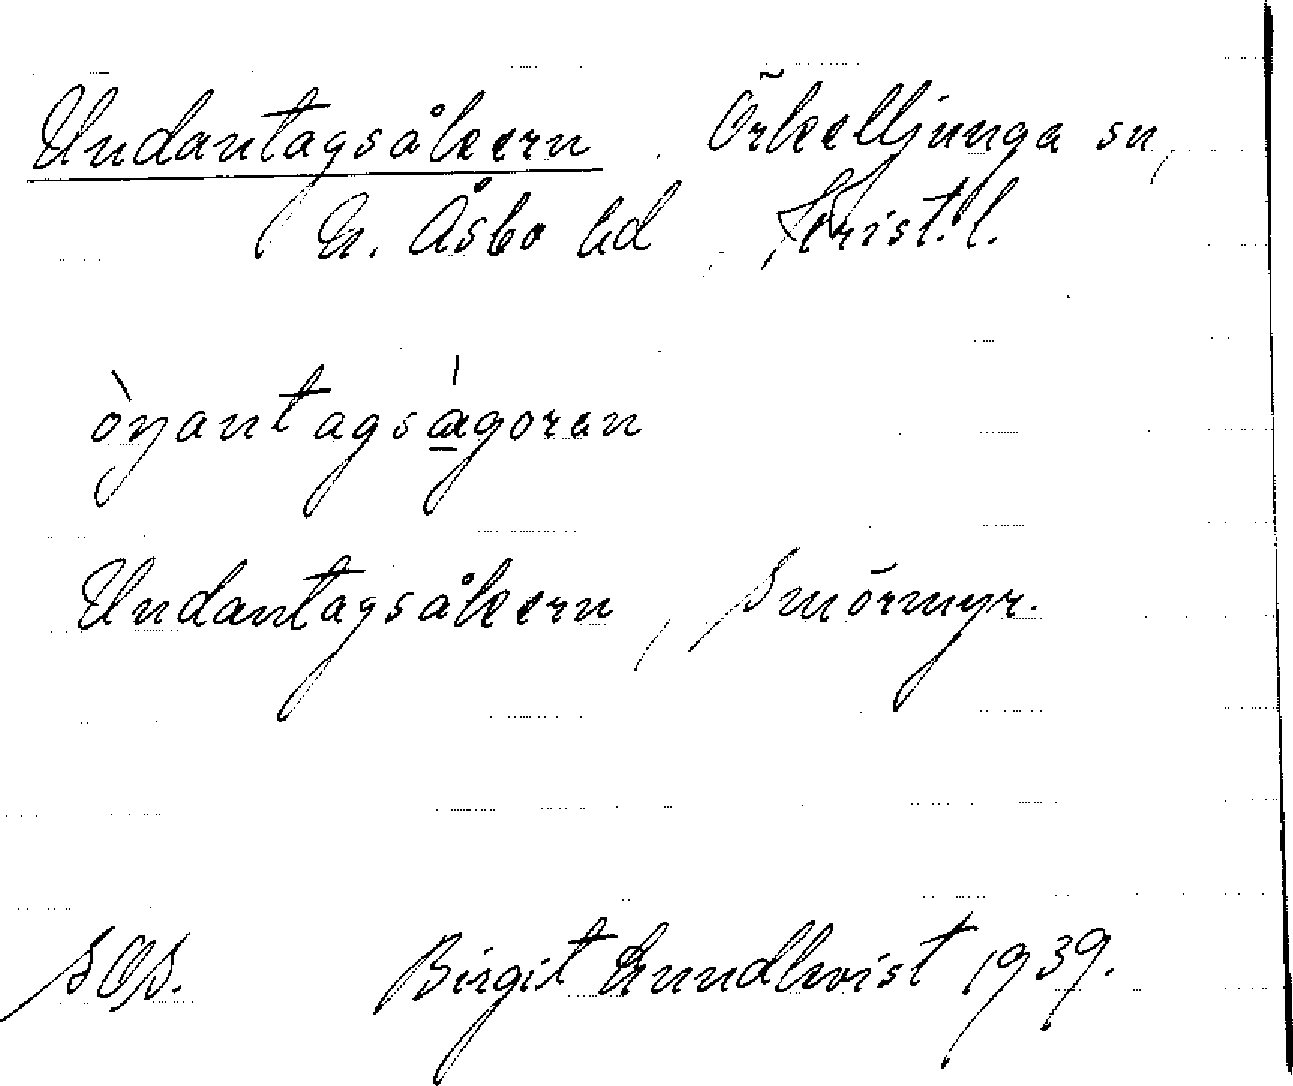 Undantagsåkern Örkelljunga sn,
N. Åsbo hd, Krist. l.
òŋantagsàgoran
Undantagsåkern, Smörmyr.
SOS. Birgit Lundkvist 1939.